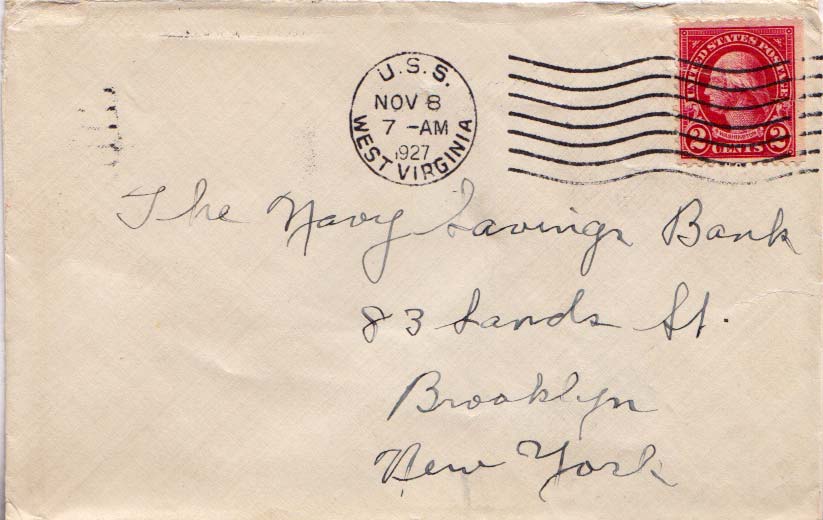 U.S.S.
NOV 8
7 -AM
1927
WEST VIRGINIA
UNITED STATES POSTAGE
WASHINGTON
2 CENTS 2
The Navy Savings Bank
83 Sands St.
Brooklyn
New York